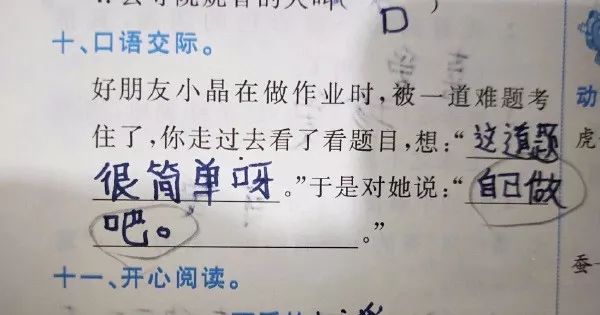 D )
十、口语交际。
好朋友小晶在做作业时,被一道难题考 动
住了,你走过去看了看题目,想:“这道题 虎
很简单呀。”于是对她说:“自己做
吧。。” 蚕
十一、开心阅读。